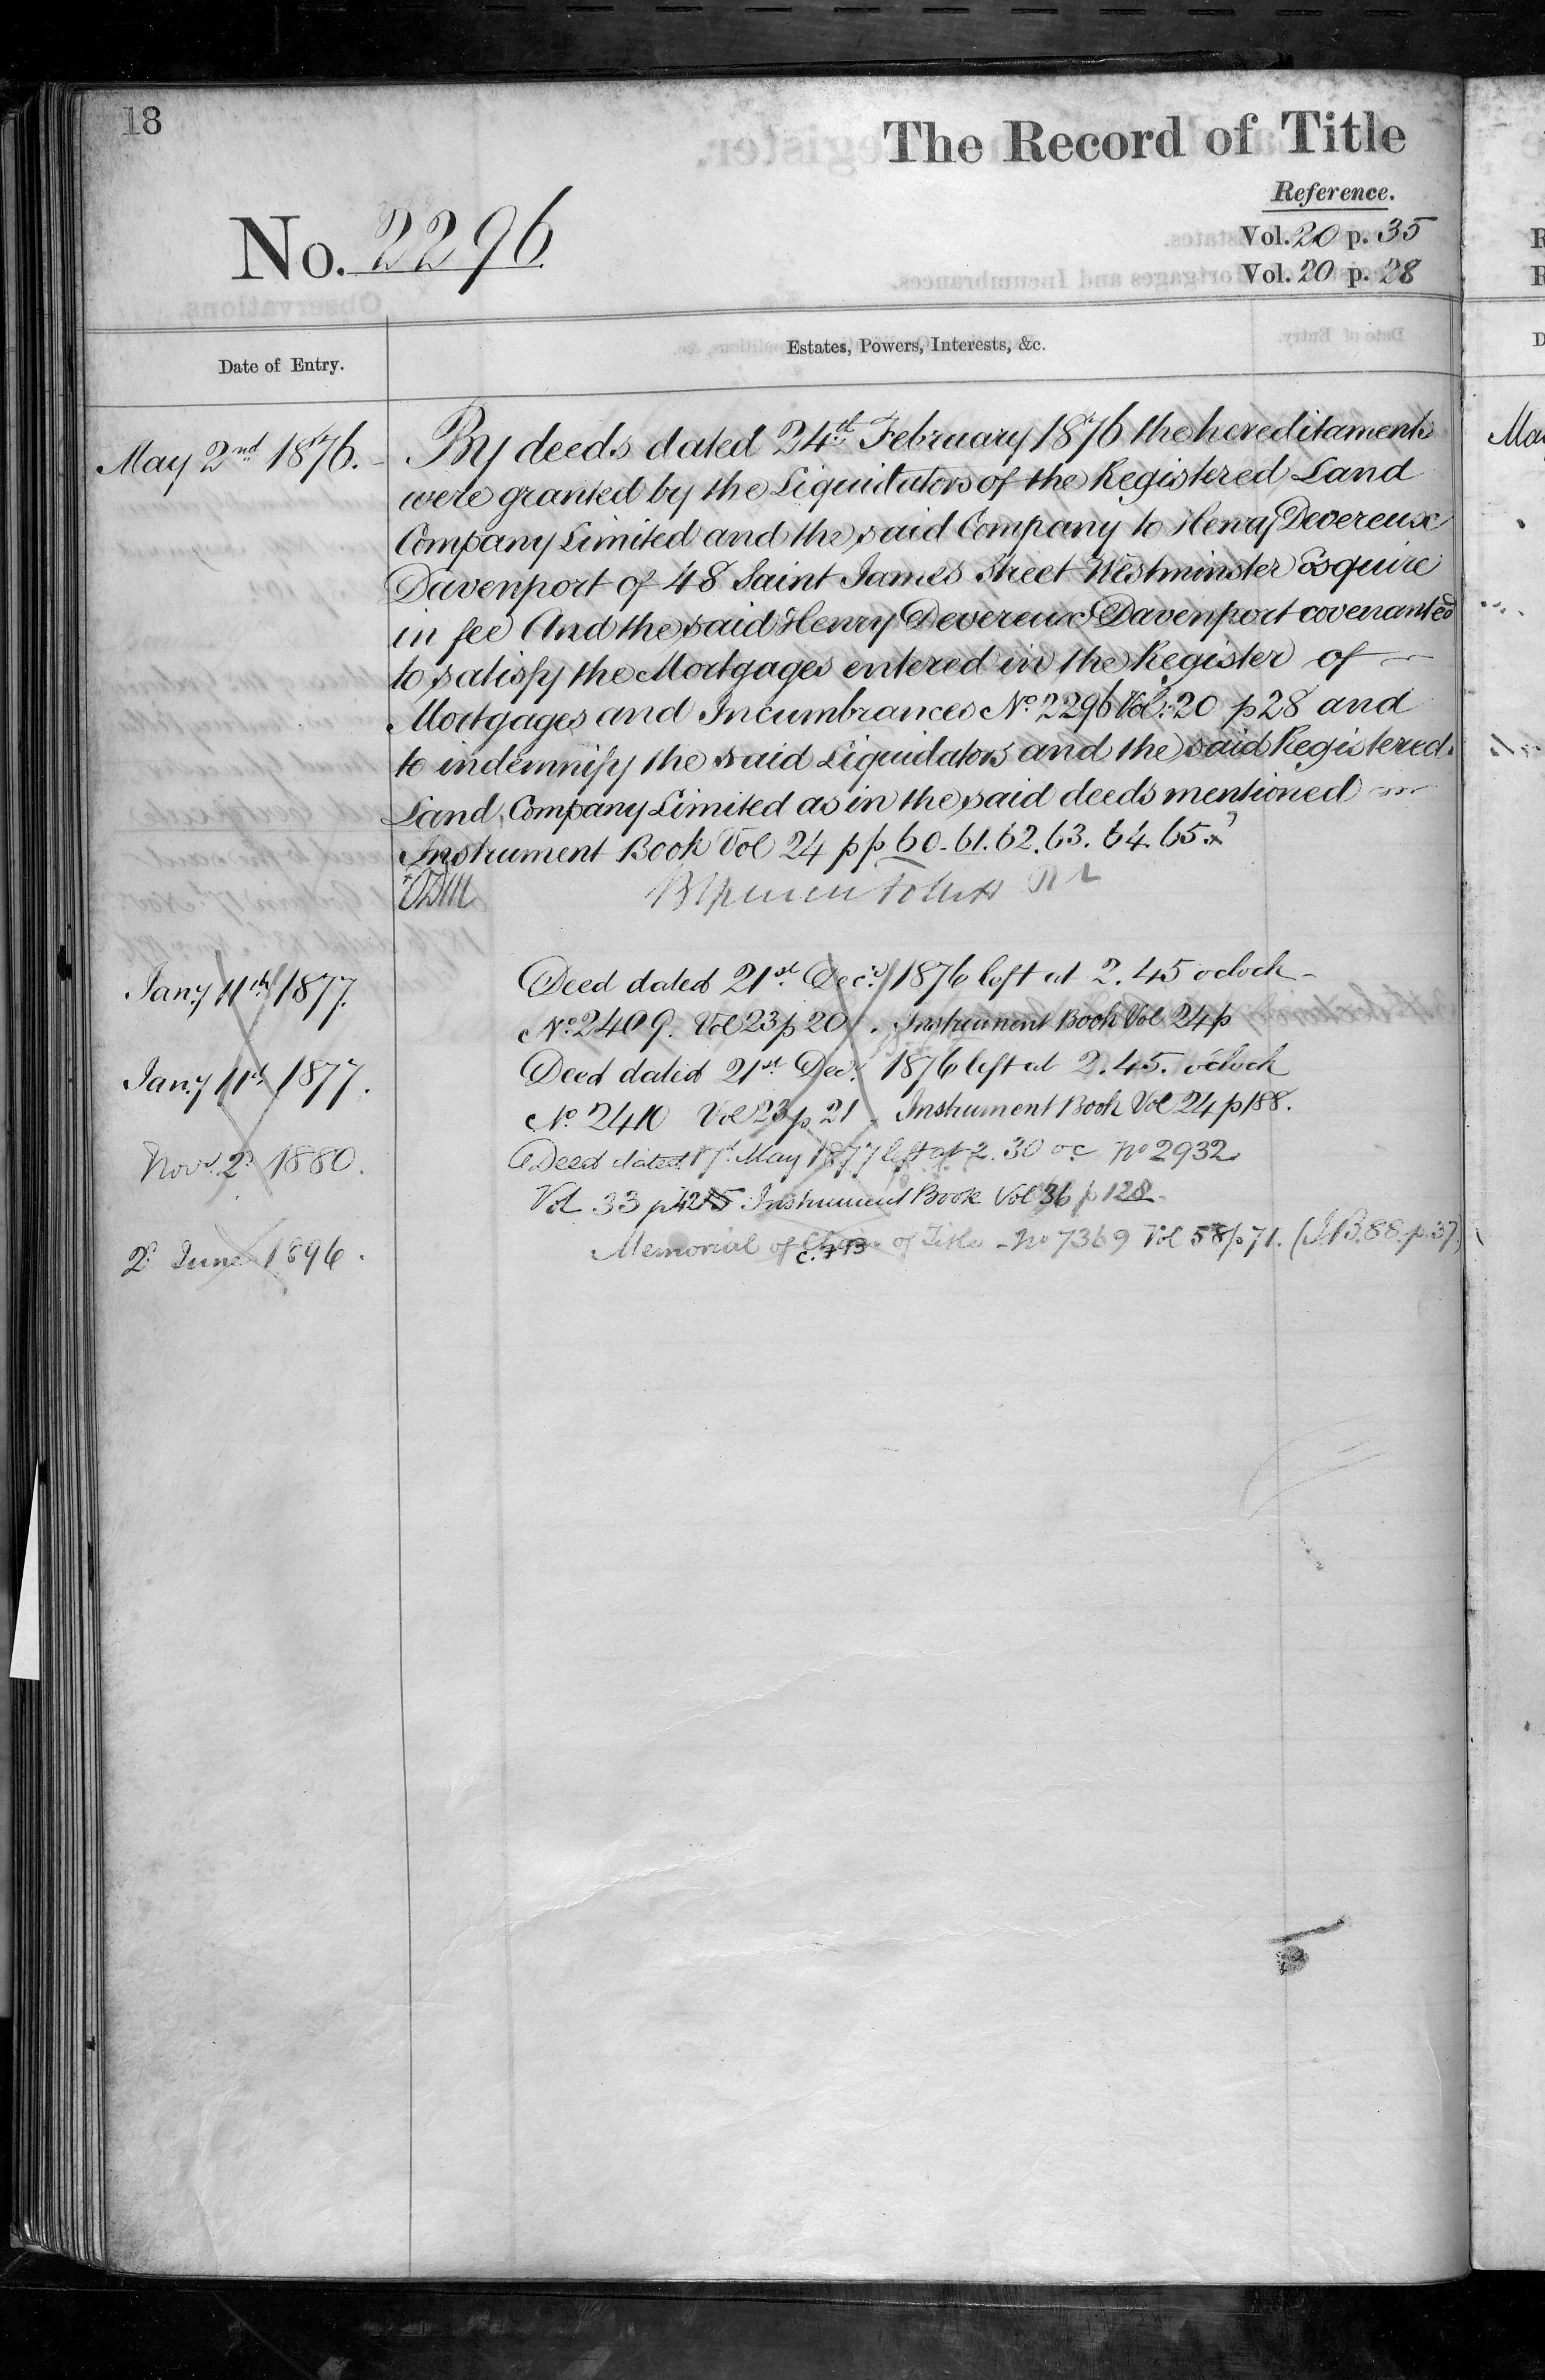 18
The Record of Title
Reference.
No. 2296
Vol. 20 p. 35
Vol. 20 p. 28
Date of Entry.
Estates, Powers, Interests, &c.
May 2nd 1876.
By deeds dated 24th February 1876 the hereditaments
were granted by the Liquidators of the Registered Land
Company Limited and the said Company to Henry Devereux
Davenport of 48 Saint James Street Westminster Esquire
in fee And the said Henry Devereux Davenport covenanted
to satisfy the Mortgages entered in the Register of
Mortgages and Incumbrances No. 2296 Vol: 20 p 28 and
to indemnify the said Liquidators and the said Registered
Land Company Limited as in the said deeds mentioned
Instrument Book Vol 24 pp 60. 61. 62. 63. 64. 65.
Jany 11th 1877.
Deed dated 21st Decr 1876 left at 2.45 oclock
No. 2409. Vol 23 p 20. Instrument Book Vol 24 p
Jany 11th 1877.
Deed dated 21st Decr 1876 left at 2.45. oclock
No. 2410 Vol 23 p 21. Instrument Book Vol 24 p 188.
Novr. 2d 1880.
Deed dated 17th May 1877 left at 2.30 oc No 2932
Vol 33 p Instrument Book Vol 36 p 128
2d June 1896.
Memorial of of Title - No 7369 Vol 58 p 71. (I.B. 88. p. 37)